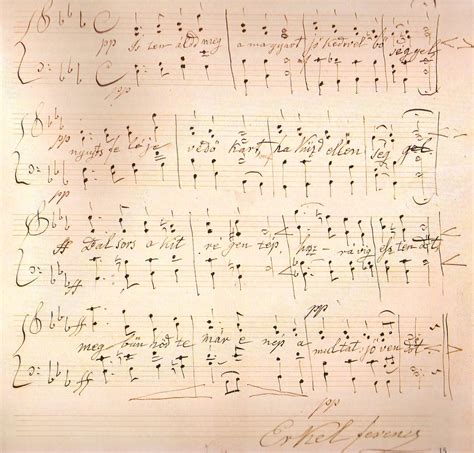 pp Is ten áldd meg a magyart jó kedvel bő séggel
pp
pp nyujts fe lé je védő kart ha küzd ellen ség gel
ff Bal sors a kit re gen tép, hoz rá víg esz tendőt
ff
pp
ff meg bűn hőd te már e nép a multat s jö ven dőt
ff
pp
Erkel ferencz